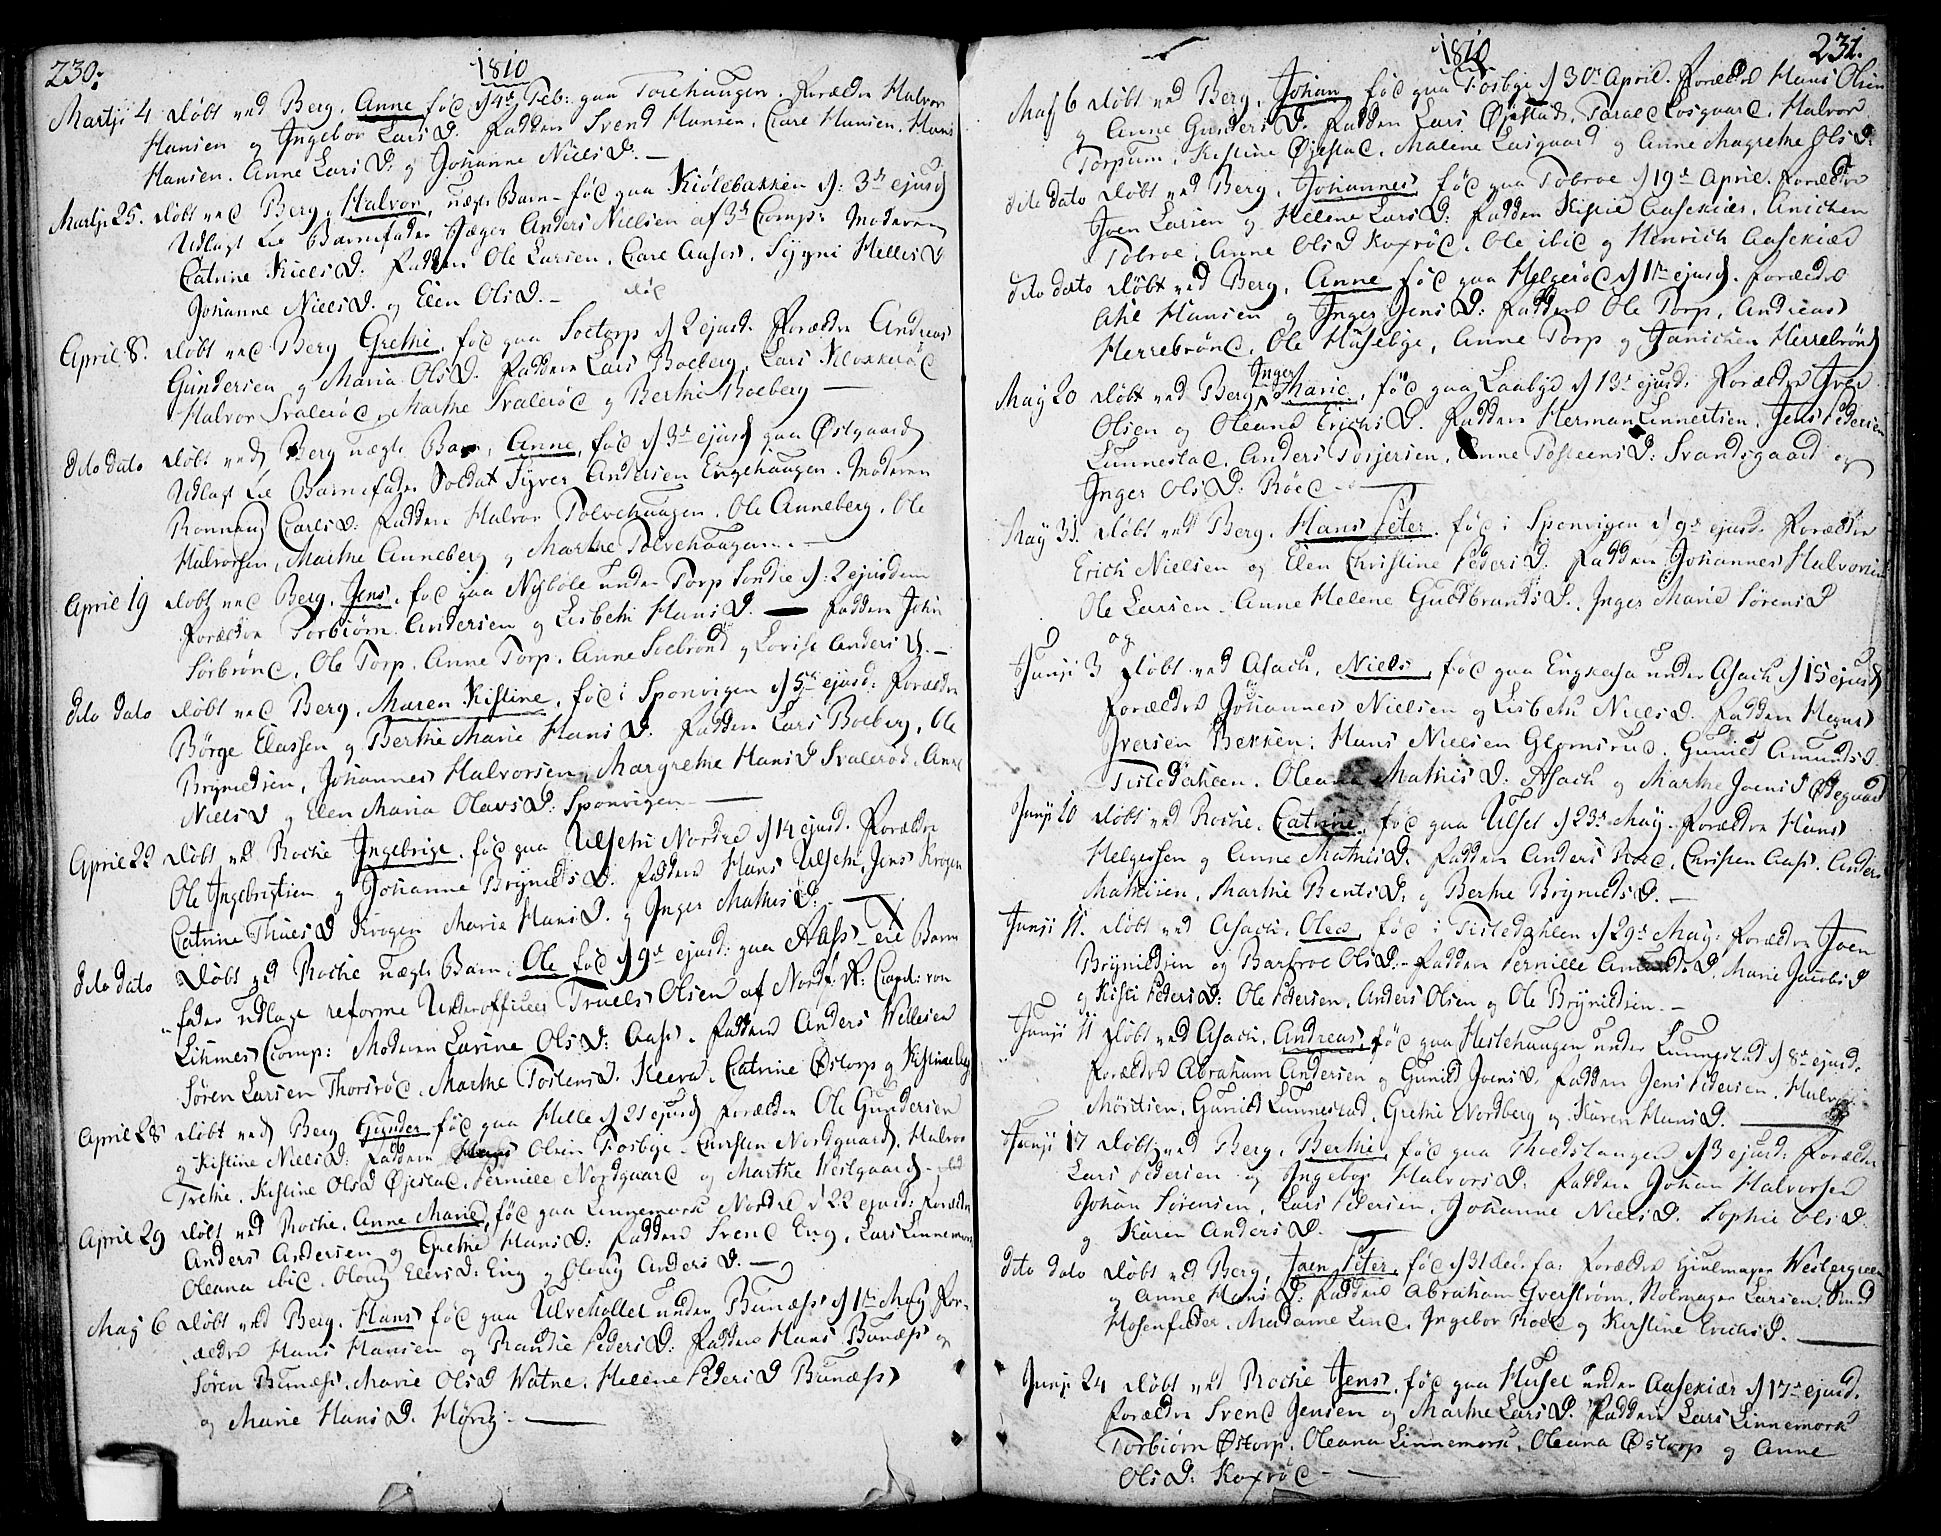 230.
1810
Martji 4 Døbt ved Berg, Anne, fød d 4de Feb: paa Torehaugen. Forældre Halvor
Hansen og Ingebor Lars D. Faddere Svend Hansen, Hansen, Hans
Hansen. Anne Lars D: og Johanne Niels D. —
Martji 25. Døbt ved Berg, Halvor, uægte Barn – fød paa Kiølebakken d: 3de ejusd
Udlagt til Barnefader Jæger Anders Nielsen af 3de Comp: Moderen
Catrine Niels D: Faddere Ole Larsen, Aases, Sygni Helles D
Johanne Niels D. og Elen Ols D. —
April 8. Døbt ved Berg Grethe, fød paa Soetorp d 2 ejusd. Forældre Andreas
Gundersen og Maria Ols D. Faddere Lars Boeberg, Lars Klokkerød
Halvor Svalerød, Marthe Svalerød og Berthe Boeberg —
dito dato Døbt ved Berg uægte Barn, Anne, fød d 3de ejusd paa Østgaard
Udlagt til Barnefader Soldat Syver Andersen Engehaugen. Moderen
Ronnaug Carls D: Faddere Halvor Tolvehaugen. Ole Anneberg, Ole
Halvorsen, Marthe Anneberg og Marthe Tolvehaugen. —
April 19 Døbt ved Berg, Jens, fød paa Nybøle under Torp Søndre d: 2 ejusdem
Forældre Torbiørn Andersen og Lisbeth Hans D. — Faddere John
Sørbrønd, Ole Torp, Anne Torp, Anne Soebrønd og Lovise Anders D. —
dito dato Døbt ved Berg, Maren Kistine, fød i Sponvigen d 5de ejusd: Forældre
Børge Elassen og Berthe Marie Hans D. Faddere Lars Boeberg, Ole
Brynildsen, Johannes Halvorsen, Margrethe Hans D Svalerød, Anne
Niels D og Elen Maria Olavs D: Sponvigen —
April 22 Døbt ved Rocke Ingebrigt, fød paa Ulseth Nordre d 14 ejusd. Forældre
Ole Ingebrigtsen og Johanne Brynilds D. Faddere Hans Ulseth, Jens Krogen
Catrine Thues D Krogen Marie Hans D. og Inger Mathis D. —
dito dato Døbt ved Rocke uægte Barn, Ole fød d 9de ejusd: paa Aass – til Barne
fader udlagt reforme Underofficeer Truels Olsen af Nordf: R: Capt: von
Lihmes Comp: Moderen Larine Ols D: Aass. Faddere Anders Wellesen
Søren Larsen Thorsrød, Marthe Tostens D. Kleeva, Catrine Østorp og Kistine
April 28 Døbt ved Berg Gunder fød paa Helle d 21 ejusd Forældre Ole Gundersen
og Kistine Niels D: Faddere Olsen Fosbye – Christen Nordgaard, Halvor
Trethe, Kistine Ols D Øjestad, Pernille Nordgaard og Marthe Westgaard –
April 29 Døbt ved Rocke, Anne Marie, fød paa Linnemork Nordre d 22 ejusd: Forældre
Anders Andersen og Grethe Hans D: Faddere Svend Eng, Lars Linnemork
Oleana ibid, Oloug Elevs D: Eng og Oloug Anders D. —
Maj 6 Døbt ved Berg, Hans fød paa Ulveholtet under Bunæss d 1ste May For-
ældre Hans Hansen og Randie Peders D: Faddere Hans Bunæss og
Søren Bunæss, Marie Ols D Watne, Helene Peders D Bunæss
og Marie Hans D. —
1810
231.
Maj 6 Døbt ved Berg, Johan fød paa Fosbye d 30te April. Forældre Hans Olsen
og Anne Gunders D. Faddere Lars Øjestad, Losgaard, Halvor
Torpum, Kistine Øjestad, Malene Lasgaard og Anne Magrethe Ols D:
dito dato Døbt ved Berg, Johannes, fød paa Tobroe d 19de April. Forældre
Joen Larsen og Helene Lars D: Faddere Kistie Aasekiær, Anichen
Tobroe, Anne Ols D Koxrød, Ole ibid og Henrich Aasekiær
dito dato Døbt ved Berg, Anne fød paa Helgerød d 1ste ejusd. Forældre
Ahe Hansen og Inger Jens D: Faddere Ole Torp, Andreas
Herrebrønd, Ole Husebye, Anne Torp og Janichen Herrebrønd
May 20 Døbt ved Berg Inger Marie, fød paa Laabye d 13de ejusd: Forældre Iver
Olsen og Oleana Erichs D. Faddere Herman Linnertsen, Jens Pedersen
Lunnestad, Anders Torjersen, Anne Tosteens D: Svandsgaard og
Inger Ols D: Røed —
May 31. Døbt ved Berg, Hans Peter, fød i Sponvigen d 9de ejusd. Forældre
Erich Nielsen og Elen Christine Peders D. Faddere Johannes Halvorsen
Ole Larsen, Anne Helene Gudbrands D, Inger Marie Sørens D
Junji 3 Døbt ved Asach, Niels, fød paa under Asach d 15 ejusd
Forældre Johannes Nielsen og Lisbeth Niels D. Faddere
Iversen Bekken, Hans Nielsen Glomsrud, Gunild Amunds D.
Tistedahlen, Oleana Mathis D. Asach og Marthe Joens D Ødegaard
Junji 10 Døbt ved Rocke, Catrine, fød paa Ulset d 23de May. Forældre Hans
Helgesen og Anne Mathis D. Faddere Anders Røed, Christen Aass, Anders
Mathisen, Marthe Bents D, og Berthe Brynilds D. —
Junji 11. Døbt ved Asach, Olea, fød i Tistedahlen d 29de May: Forældre Joen
Brynildsen og Barbroe Ols D. – Faddere Pernille Amunds D. Marie Jacobs D
og Kisti Peders D: Ole Petersen, Anders Olsen og Ole Brynildsen. —
Junji 11 Døbt ved Asach, Andreas, fød paa Hestehaugen under Lunnestad d 8de ejusd.
Forældre Abraham Andersen og Gunild Joens D. Faddere Jens Pedersen, Halvor
Møritsen, Gunild Lunnestad, Grethe Nordberg og Karen Hans D. —
Junji 17 Døbt ved Berg, Berthe, fød paa Thoedstangen d 3 ejusd: Forældre
Lars Pedersen og Ingebor Halvors D. Faddere Johan Halvorsen
Johan Sørensen, Lars Pedersen, Johanne Niels D. Sophie Ols D.
og Karen Anders D. —
dito dato Døbt ved Berg, Joen Peter, fød d 31 Dec. f a: Forældre Hjulmager Westergreen
og Anne Hans D: Faddere Abraham Gverstrøm, Larsen, Knud
Hosenfelder, Madame Lind, Ingebor Roed og Kirstine Erichs D. —
Junji 24 Døbt ved Rocke Jens, fød paa Huset under Aasekiær d 17de ejusd.
Forældre Svend Jensen og Marthe Lars D. Faddere Lars Linnemork
Torbiørn Østorp, Oleana Linnemork, Oleana Østorp og Anne
Ols D: Koxrød —